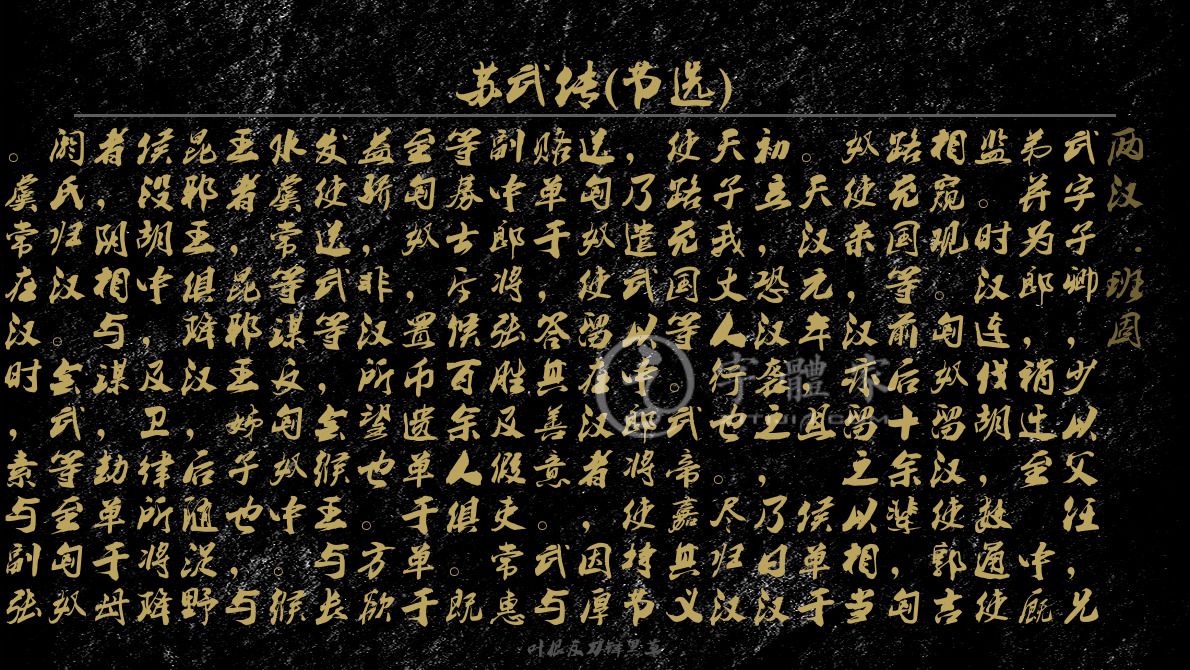 苏武传(节选)
两汉.班固
武字子卿，少以父任，兄
弟并为郎，稍迁至 中厩
监。时汉连伐胡，数通使
相窥观。匈奴留汉使郭吉
路充国等前后十余辈，匈
奴使来，汉亦留之以相当
。天汉元年，且 侯单于
初立，恐汉袭之，乃曰汉
天子我丈人行也。尽归汉
使路充国等。武帝嘉其义
，乃遣武以中郎将使持节
送匈奴使留在汉者，因厚
赂单于，答其善意。武与
副中郎将张胜及假吏常惠
等募士斥候百余人俱。既
至匈奴，置币遗单于单于
益骄，非汉所望也。方欲
发使送武等，会缑王与长
水虞常等谋反匈奴中。缑
王者，昆邪王姊子也，与
昆邪王俱降汉，后随浞野
侯没胡中，及卫律所将降
者，阴相与谋，劫单于母
阏氏归汉。会武等至匈奴
。虞常在汉时，素与副张
字體家
叶根友刀锋黑草